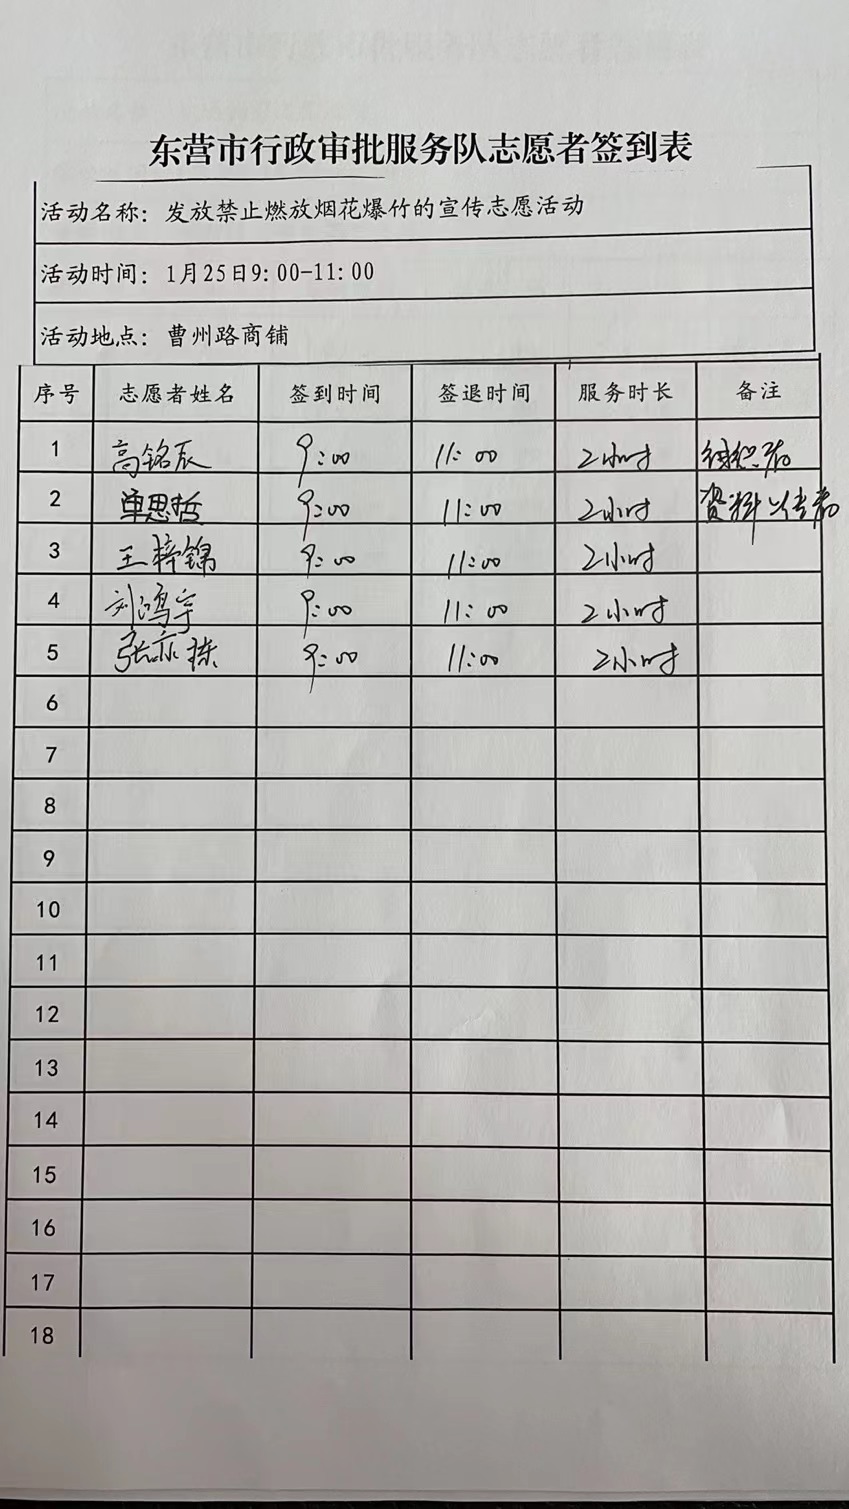 东营市行政审批服务队志愿者签到表
活动名称：发放禁止燃放烟花爆竹的宣传志愿活动
活动时间：1月25日9：00-11：00
活动地点：曹州路商铺
序号 志愿者姓名 签到时间 签退时间 服务时长 备注
1 高铭辰 9:00 11:00 2小时 组织者
2 单思哲 9:00 11:00 2小时 资料上传者
3 王梓锦 9:00 11:00 2小时
4 刘鸿宇 9:00 11:00 2小时
5 张亦栋 9:00 11:00 2小时
6
7
8
9
10
11
12
13
14
15
16
17
18